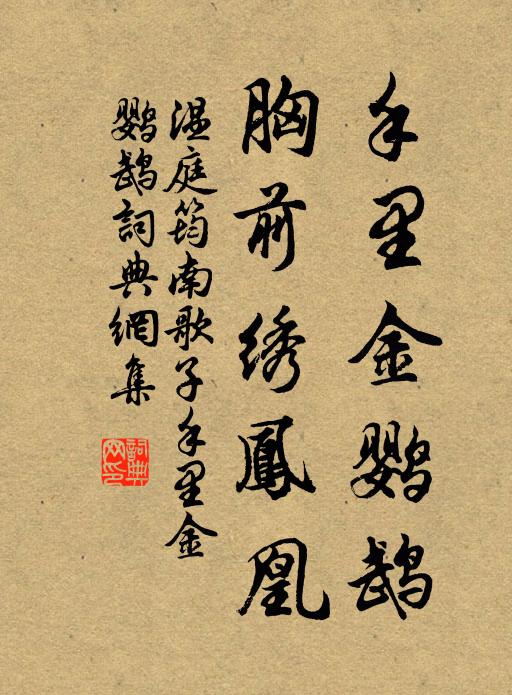 手里金鹦鹉
胸前绣鳳凰
温庭筠南歌子手里金
鹦鹉詞典網集
詞典
网印